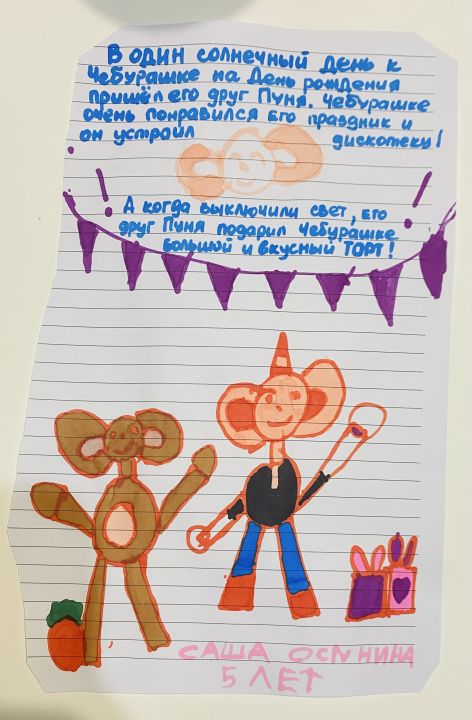 В один солнечный день к
Чебурашке на День рождения
пришёл его друг Пуня. Чебурашке
очень понравился его праздник и
он устроил дискотеку!
А когда выключили свет, его
друг Пуня подарил Чебурашке
большой и вкусный ТОРТ!
САША ОСМНИНА
5 ЛЕТ